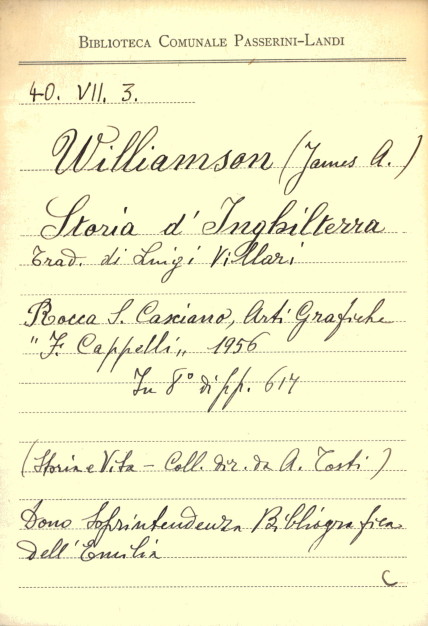 BIBLIOTECA COMUNALE PASSERINI-LANDI
40. VII. 3.
Williamson (James A.)
Storia d' Inghilterra
Trad. di Luigi Villari
Rocca S. Casciano, Arti Grafiche
"F. Cappelli„ 1956
In 8° di pp. 614
(Storia e Vita - Coll. dir. da A. Tosti)
Dono Soprintendenza Bibliografica
dell'Emilia
C